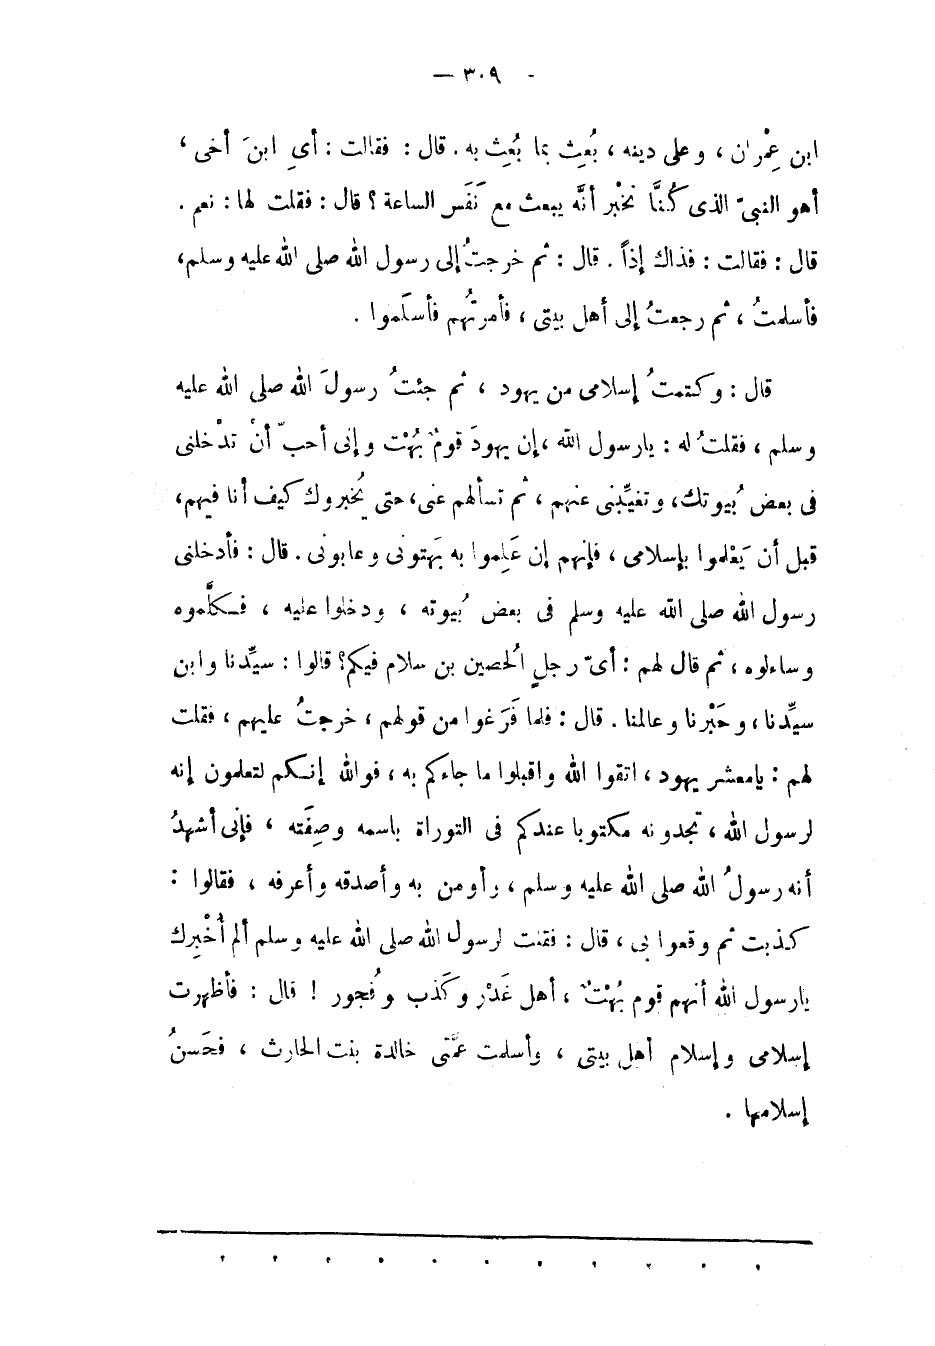 - ٣٠٩ —
ابن عِمْران ، وعلى دينه ، بُعِث بما بُعِث به . قال : فقالت : أىِ ابنَ أخى ،
أهو النبىّ الذى كُنَّا نُخْبر أنَّه يبعث مع نَفَس الساعة ؟ قال : فقلت لها : نعم .
قال : فقالت : فذاك إذاً . قال : ثم خرجتُ إلى رسول الله صلى الله عليه وسلم ،
فأسلمتُ ، ثم رجعتُ إلى أهل بيتى ، فأمرتُهم فأسلَموا .
قال : وكتمتُ إسلامى من يهود ، ثم جئتُ رسولَ الله صلى الله عليه
وسلم ، فقلتُ له : يارسول الله ، إن يهودَ قومٌ بُهْت وإنى أحبّ أنْ تدْخلنى
فى بعض بُيوتك ، وتغيِّبنى عنهم ، ثم تسألهم عنى ، حتى يُخبروك كيف أنا فيهم ،
قبل أن يَعْلموا بإسلامى ، فإنهم إن عَلِموا به بَهتونى وعابونى . قال : فأدخلنى
رسول الله صلى الله عليه وسلم فى بعض بُيوته ، ودخلوا عليه ، فكلَّموه
وساءلوه ، ثم قال لهم : أىّ رجلٍ الُحصين بن سلام فيكم؟ قالوا : سيِّدنا وابن
سيِّدنا ، وحَبْرنا وعالمنا . قال : فلما فَرَغوا من قولهم ، خرجتُ عليهم ، فقلت
لهم : يامعشر يهود ، اتقوا الله واقبلوا ما جاءكم به ، فوالله إنكم لتعلمون إنه
لرسول الله ، تجدونه مكتوبا عندكم فى التوراة باسمه وصِفَته ، فإنى أشهدُ
أنه رسولُ الله صلى الله عليه وسلم ، وأومن به وأصدقه وأعرفه ، فقالوا :
كذبت ثم وقعوا بى ، قال : فقلت لرسول الله صلى الله عليه وسلم ألم أُخْبرك
يارسول الله أنهم قوم بُهْتٌ ، أهل غَدْر وكَذب وفُجور ! قال : فأظهرت
إسلامى وإسلام أهل بيتى ، وأسلمت عمَّتى خالدة بنت الحارث ، فحَسنُ
إسلامها .